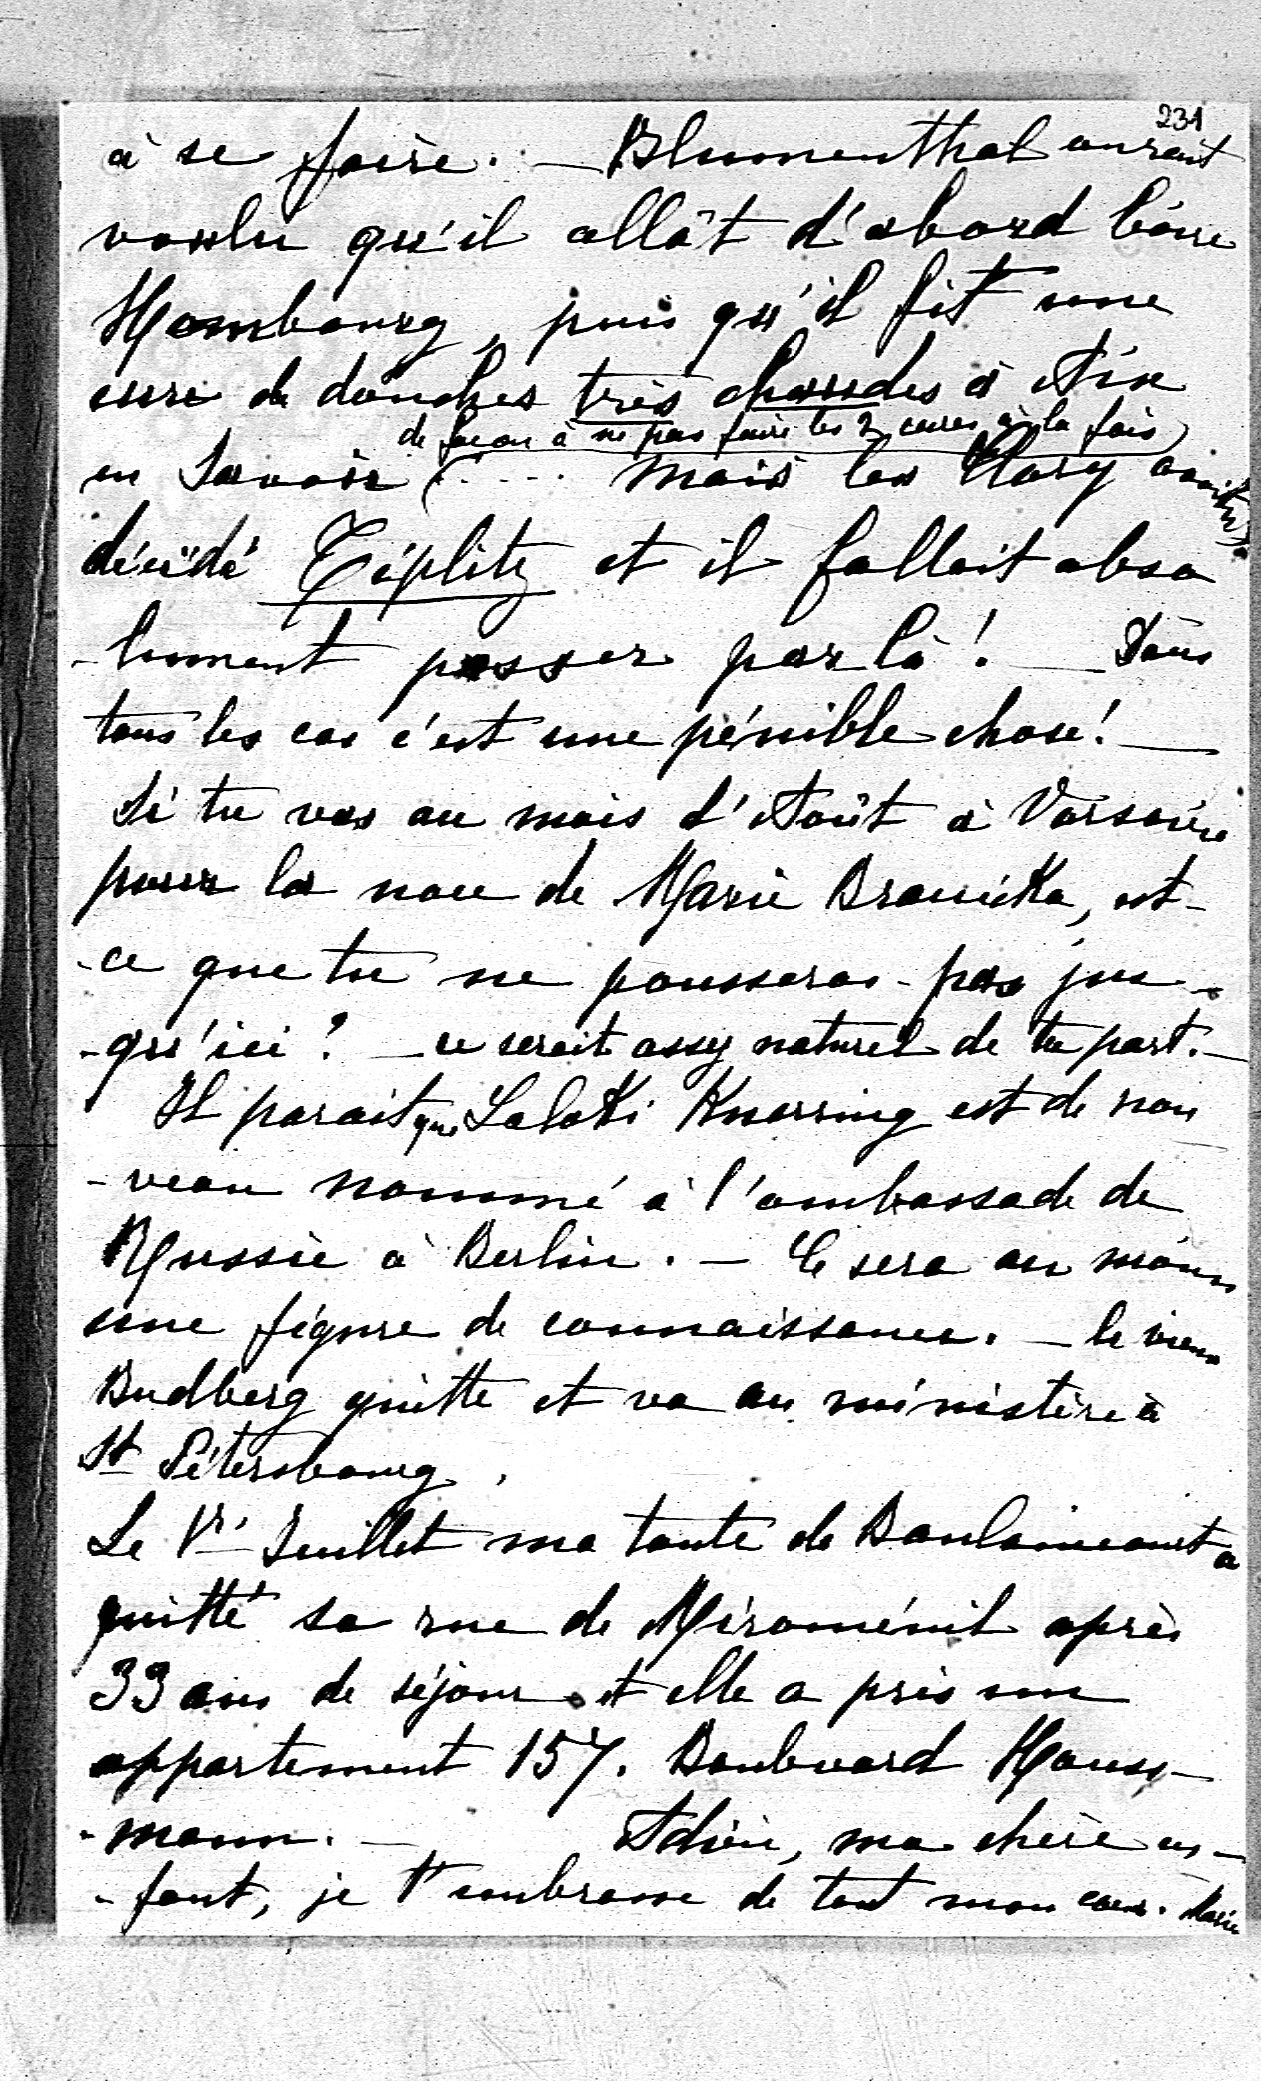 231
à se faire. — Blumenthal aurait
voulu qu'il allât d'abord boire
Hombourg, puis qu'il fît une
cure de douches très chaudes à Aix
de façon à ne pas faire les 2 cures à la fois)
en Savoie (.... mais les Clary avaient
décidé Téplitz et il fallait abso
-lument passer par là! — Dans
tous les cas c'est une pénible chose! —
Si tu vas au mois d'Août à Varsovie
pour la noce de Marie Branicka, est-
-ce que tu ne pousseras pas jus-
-qu'ici? — ce serait assez naturel de ta part. —
Il parait que Saloki Knorring est de nou
-veau nommé à l'ambassade de
Russie à Berlin. — Ce sera au moins
une figure de connaissance. — le vieux
Budberg quitte et va au ministère à
St Pétersbourg.
Le 1er Juillet ma tante de Baulaincourt a
quitté sa rue de Miroménil après
33 ans de séjour et elle a pris un
appartement 157. Boulevard Hauss-
-mann. — Adieu, ma chère en-
-fant, je t'embrasse de tout mon cœur. Marie